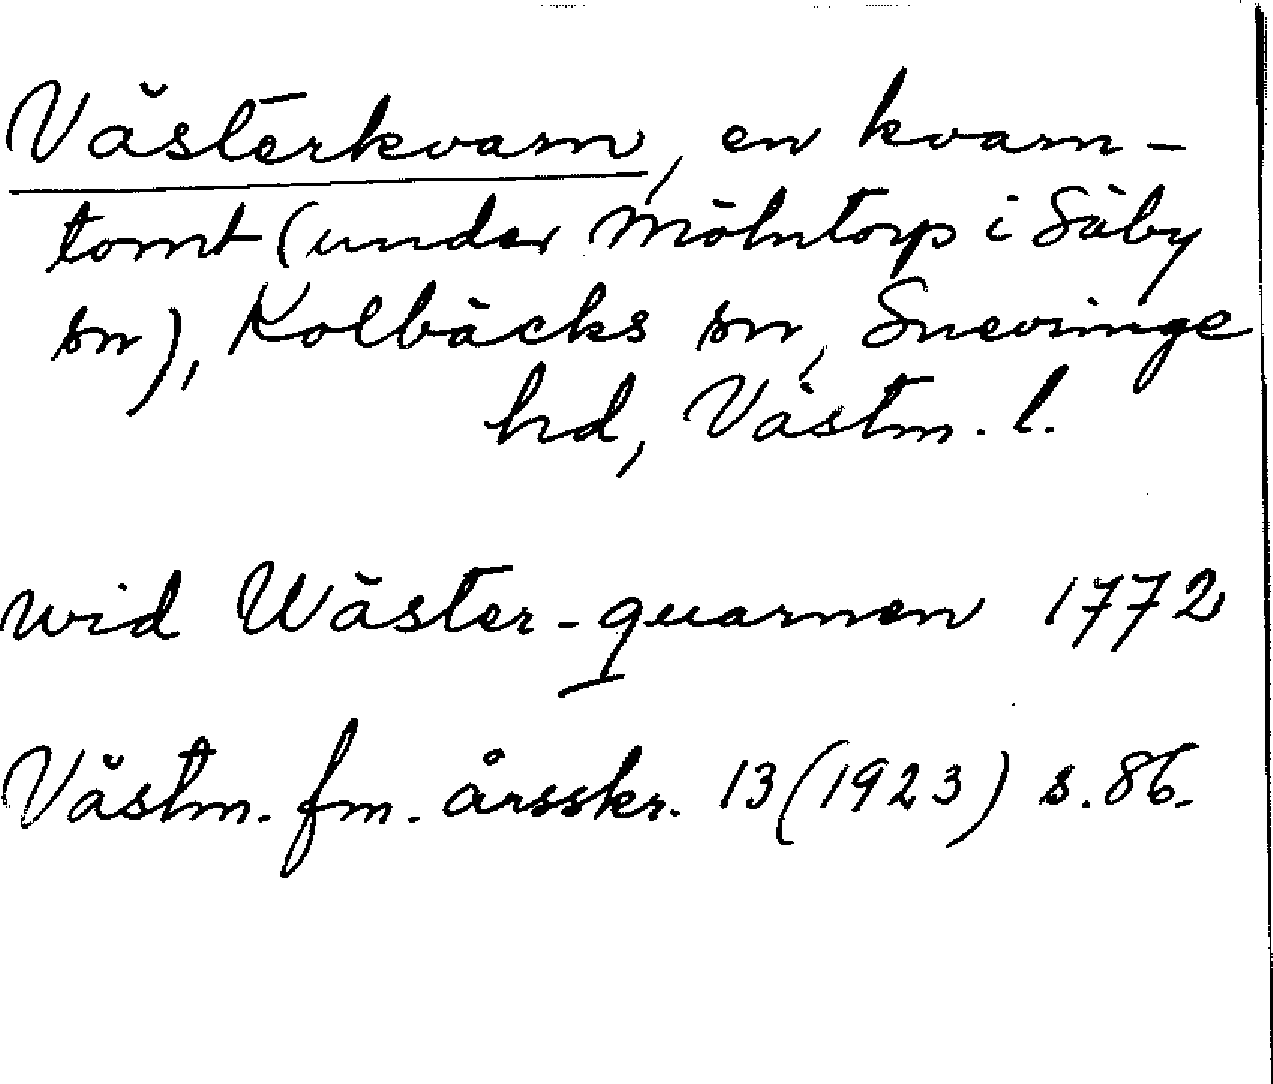 Västerkvarn, en kvarn-
tomt (under Mölntorp i Säby
sn), Kolbäcks sn, Snevinge
hd, Västm. l.
wid Wäster-quarnen 1772
Västm. fm. årsskr. 13 (1923) s. 86.